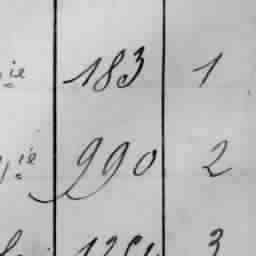 ie 183 1
ie 990 2
3